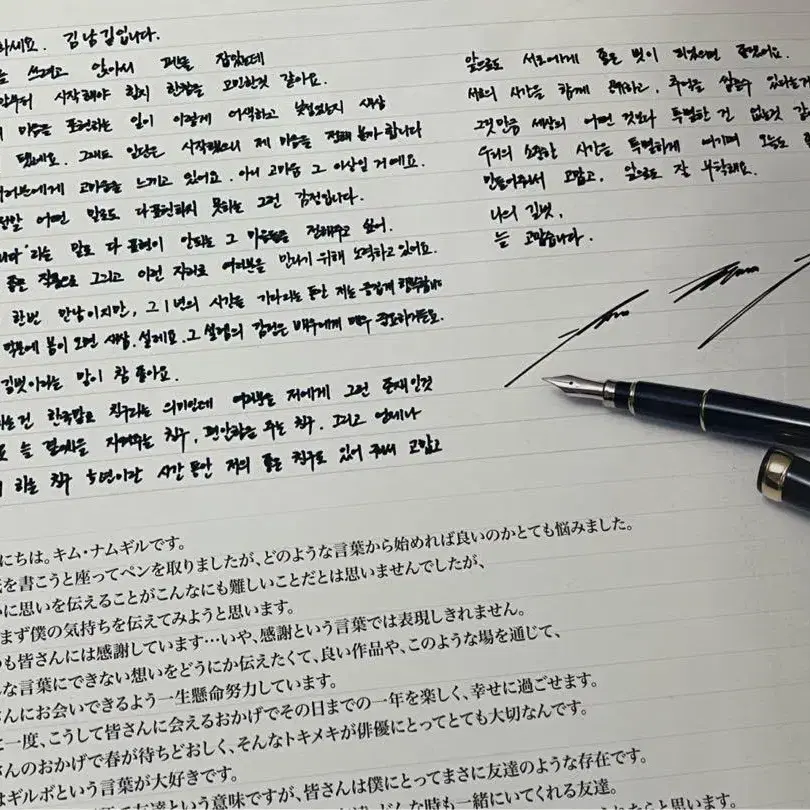 하세요. 김남길입니다.
쓰려고 앉아서 펜을 잡았는데
부터 시작해야 할지 한참을 고민한것 같아요.
마음을 표현하는 일이 이렇게 어색하고 낯설었는지 새삼
됐네요. 그래도 일단은 시작했으니 제 마음을 전해 볼까 합니다
여러분에게 고마움을 느끼고 있어요. 아니 고마움 그 이상일 거예요.
정말 어떤 말로도 다 표현하지 못하는 그런 감정입니다.
니다'라는 말로 다 표현이 안되는 그 마음들을 전해주고 싶어.
좋은 작품으로 그리고 이런 자리로 여러분을 만나기 위해 노력하고 있어요.
한번 만남이지만, 그 1년의 시간을 기다리는 동안 저는 즐겁게
덕분에 봄이 오면 새삼. 설레요. 그 설렘의 감정은 배우에게 매우 중요하거든요.
길벗이라는 말이 참 좋아요.
한국말로 친구라는 의미인데 여러분은 저에게 그런 존재인것
늘 곁에 지켜주는 친구, 편안함을 주는 친구, 그리고 언제나
하는 친구 5년이란 시간 동안 저의 좋은 친구로 있어 주셔서 고맙고
앞으로도 서로에게 좋은 벗이 되었으면 좋겠어요.
서로의 시간을 함께 공유하고, 추억을 쌓을수 있다는거
그것만큼 세상의 어떤 것보다 특별한 건 없는것 같
우리의 소중한 시간을 특별하게 여기며 오늘도
만들어주셔서 고맙고, 앞으로도 잘 부탁해요.
나의 길벗,
늘 고맙습니다.
にちは。キム・ナムギルです。
を書こうと座ってペンを取りましたが、どのような言葉から始めれば良いのかとても悩みました。
に思いを伝えることがこんなにも難しいことだとは思いませんでしたが、
まず僕の気持ちを伝えてみようと思います。
も皆さんには感謝しています…いや、感謝という言葉では表現しきれません。
な言葉にできない想いをどうにか伝えたくて、良い作品や、このような場を通じて、
さんにお会いできるよう一生懸命努力しています。
に一度、こうして皆さんに会えるおかげでその日までの一年を楽しく、幸せに過ごせます。
さんのおかげで春が待ちどおしく、そんなトキメキが俳優にとってとても大切なんです。
はギルボという言葉が大好きです。
友達という意味ですが、皆さんは僕にとってまさに友達のような存在です。
どんな時も一緒にいてくれる友達。
たらと思います。